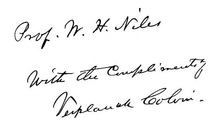 Prof. W. H. Niles
With the Compliments of
Verplanck Colvin.